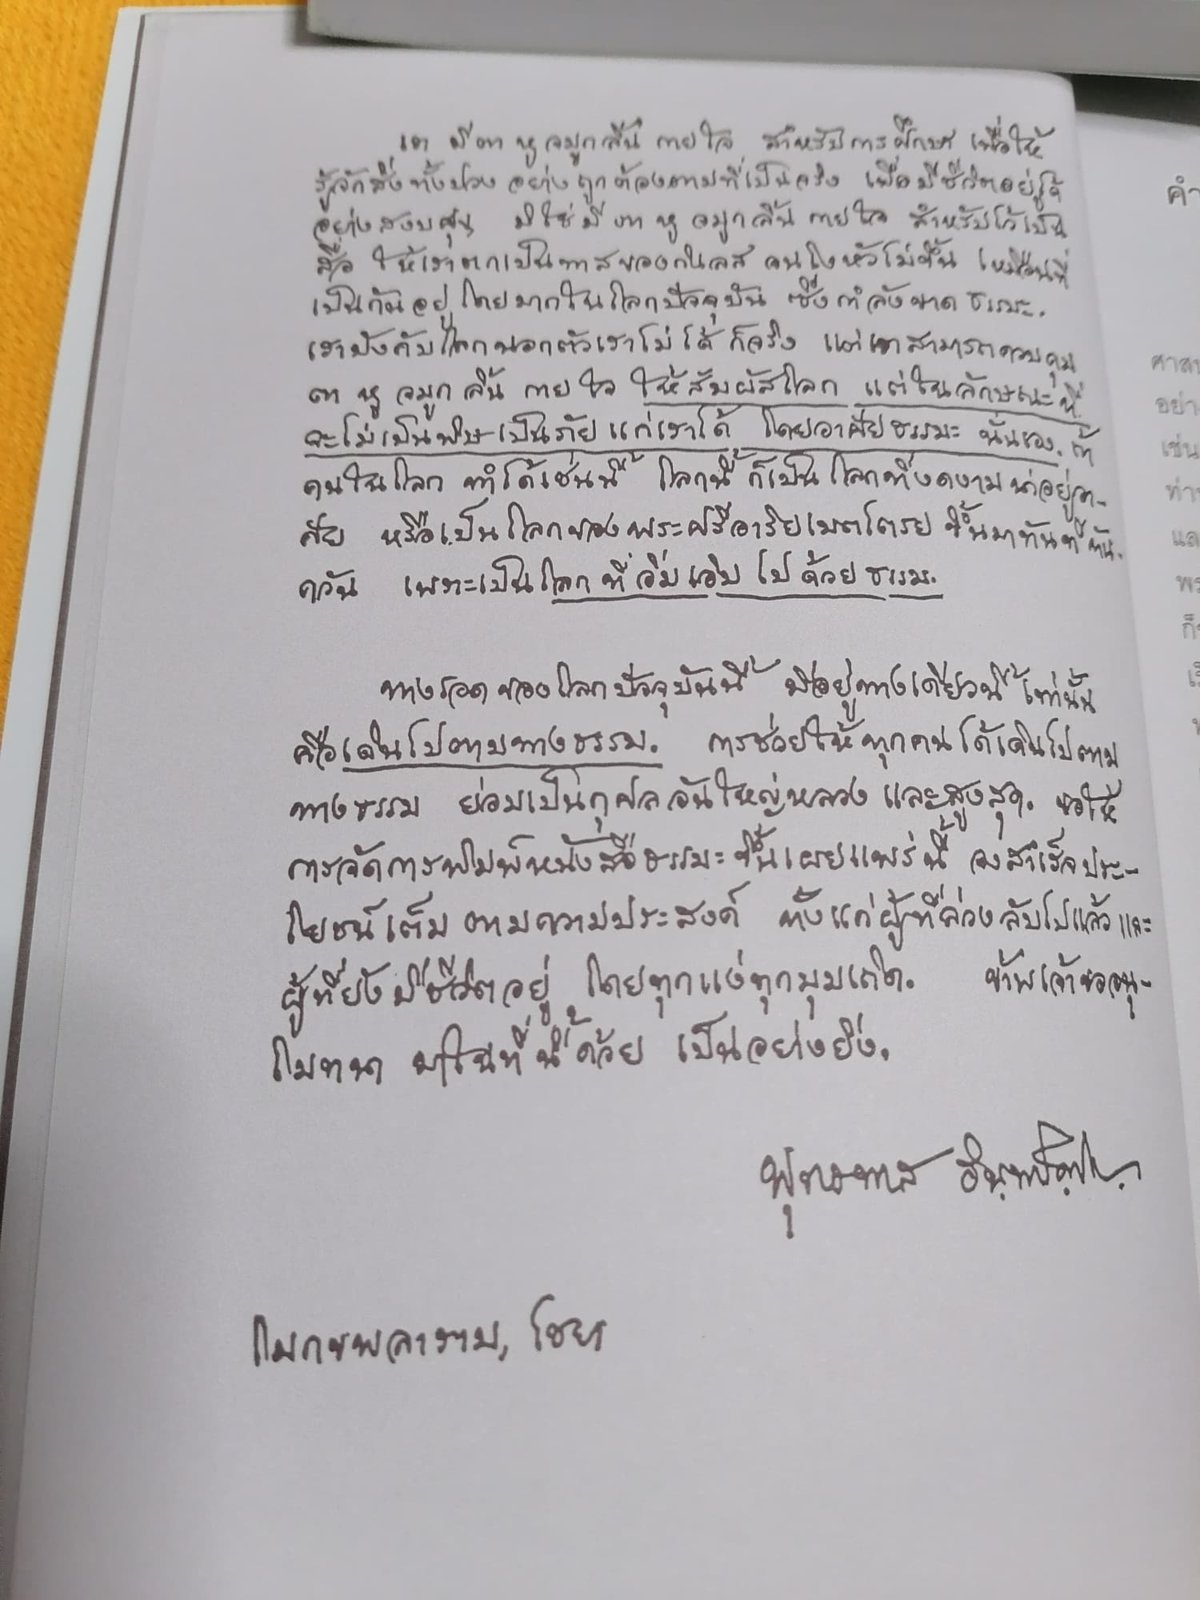 เรา มีตา หู จมูก ลิ้น กาย ใจ สำหรับการศึกษา เพื่อให้
รู้จักสิ่งทั้งปวง อย่างถูกต้องตามที่เป็นจริง เพื่อมีชีวิตอยู่ได้
อย่างสงบสุข, มิใช่มี ตา หู จมูก ลิ้น กาย ใจ สำหรับไว้เป็น
สื่อ ให้เราตกเป็นทาสของกิเลส จนโงหัวไม่ขึ้น เหมือนที่
เป็นกันอยู่ โดยมากในโลกปัจจุบัน ซึ่งกำลังขาด ธรรมะ.
เราบังคับโลกนอกตัวเราไม่ได้ ก็จริง แต่เราสามารถควบคุม
ตา หู จมูก ลิ้น กาย ใจ ให้สัมผัสโลก แต่ในลักษณะที่
จะไม่เป็นพิษเป็นภัย แก่เราได้ โดยอาศัยธรรมะ นั่นเอง. ถ้า
คนในโลก ทำได้เช่นนี้ โลกนี้ ก็เป็นโลกที่งดงาม น่าอยู่อา-
ศัย หรือเป็นโลกของพระศรีอาริยเมตไตรย ขึ้นมาทันที ทัน-
ควัน เพราะเป็นโลก ที่ อิ่มเอิบ ไปด้วย ธรรม.
ทางรอด ของโลกปัจจุบันนี้ มีอยู่ทางเดียวนี้ เท่านั้น
คือเดินไปตามทางธรรม. การช่วยให้ ทุกคน ได้เดินไปตาม
ทางธรรม ย่อมเป็นกุศล อันใหญ่หลวง และสูงสุด. ขอให้
การจัดการพิมพ์หนังสือธรรมะ ขึ้นเผยแพร่นี้ จงสำเร็จประ-
โยชน์ เต็มตามความประสงค์ ทั้งแก่ผู้ที่ล่วงลับไปแล้ว และ
ผู้ที่ยังมีชีวิตอยู่ โดยทุกแง่ทุกมุมเถิด. ข้าพเจ้าขออนุ-
โมทนา มาในที่นี้ด้วย เป็นอย่างยิ่ง.
พุทธทาส อินฺทปญฺโญ
โมกขพลาราม, ไชยา
คำ
ศาสน
อย่า
เช่น
ท่าน
แล
พร